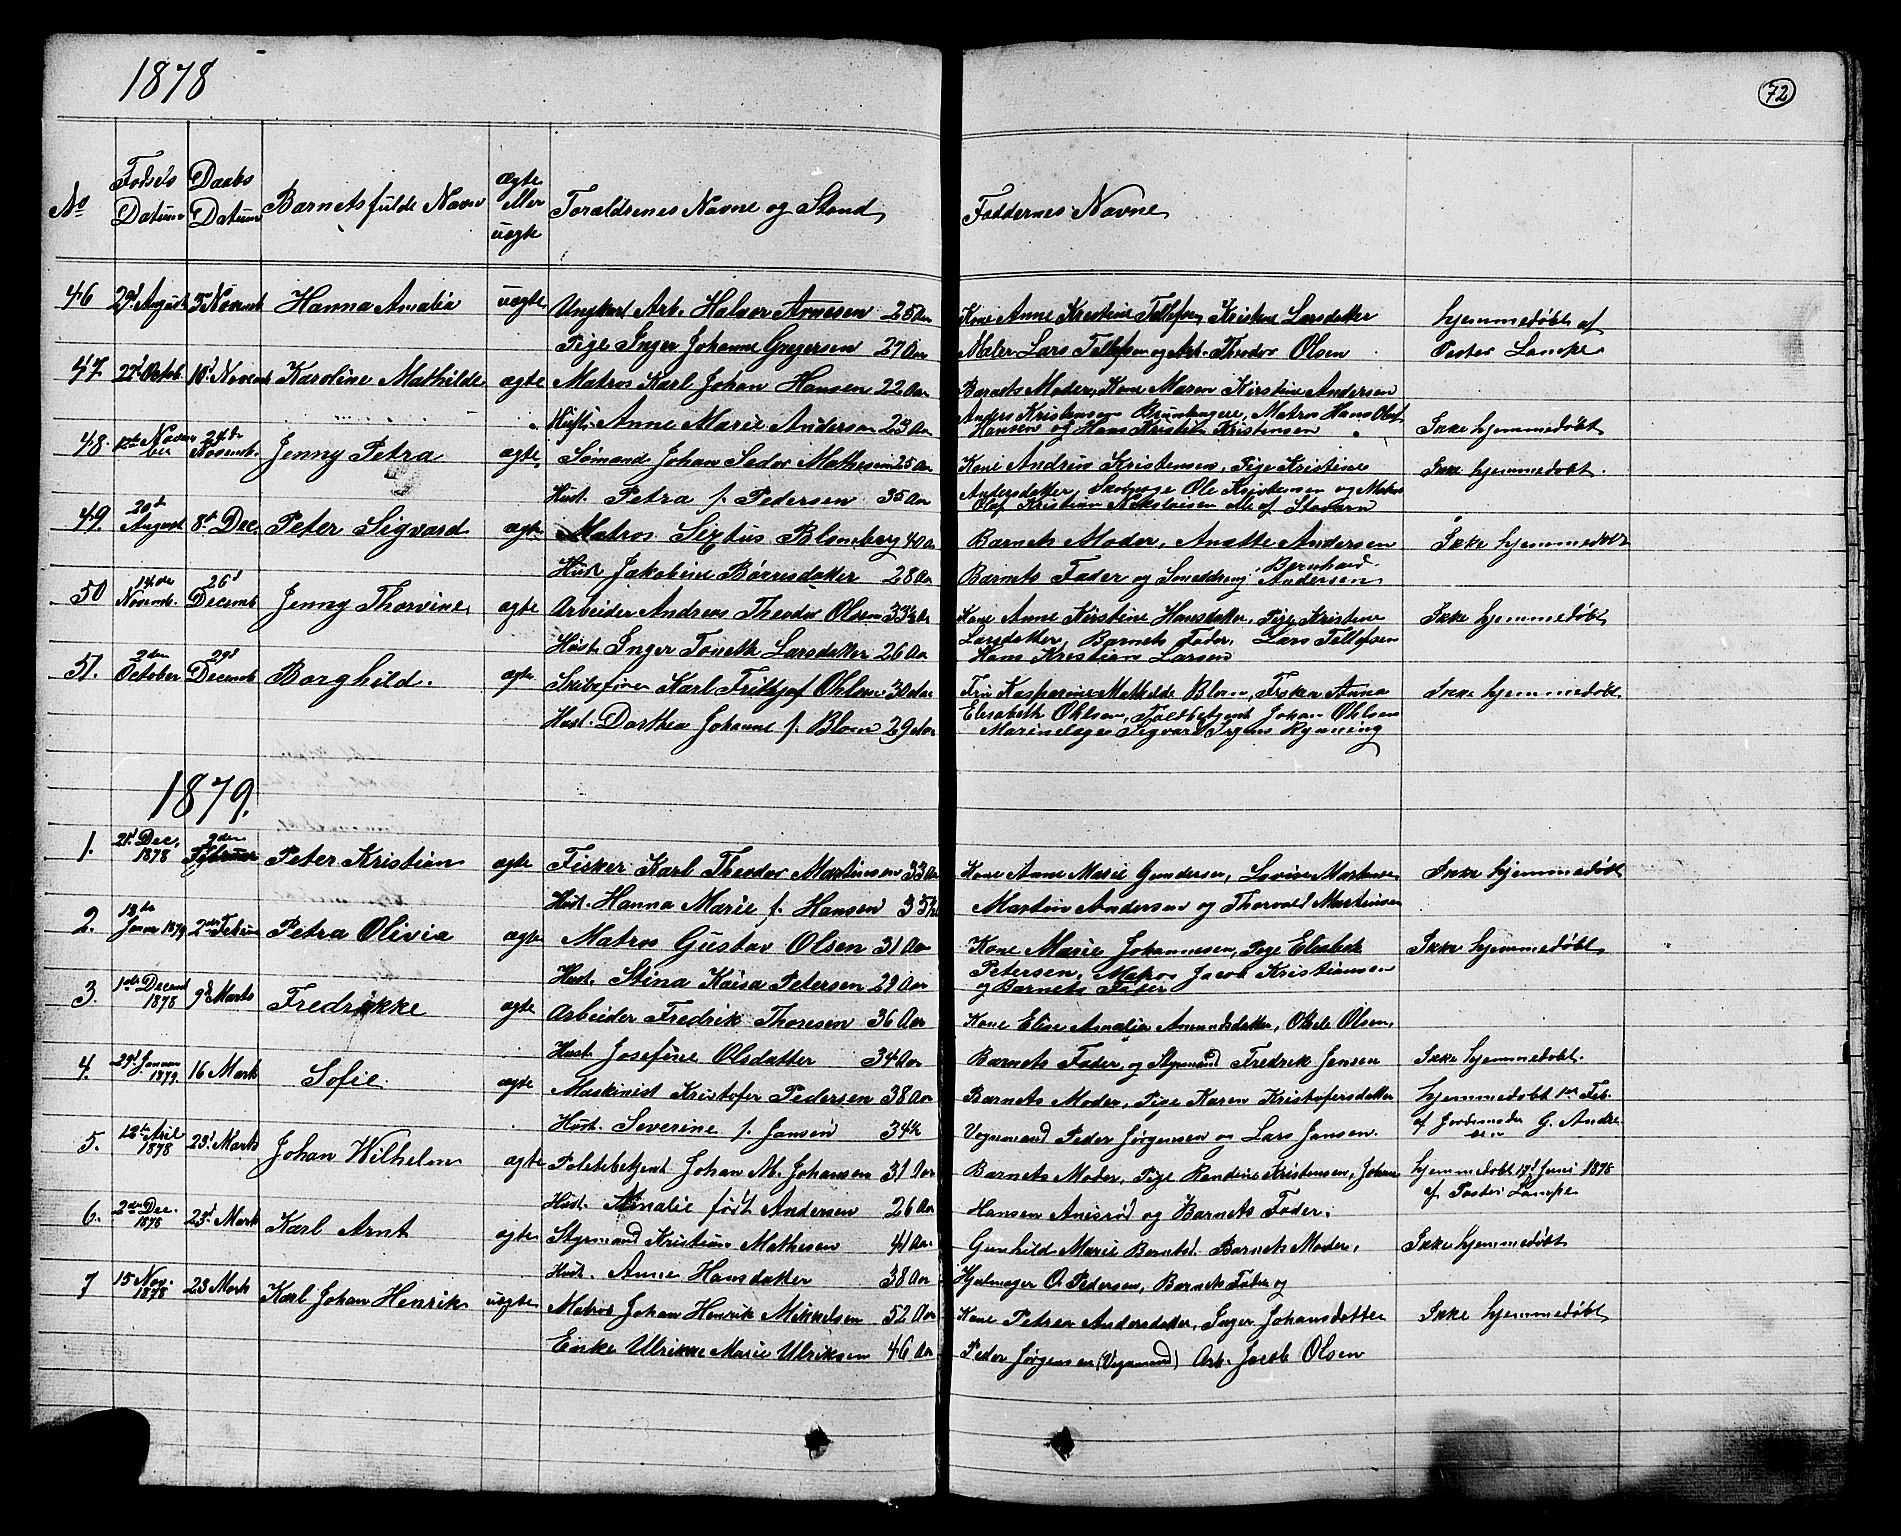 1878
72
No
Fødsels Datum
Daabs Datum
Barnets fulde Navn
Ægte eller uægte
Foraldrenes Navne og Stand
Faddernes Navne
46 29d August 3 Novemb Hanna Amalia uægte Ungkarl Arb. Halvor Arnesen 25 Aar Kone Anne Kristine Tellefsen, Kristine Larsdatter hjemmedøbt af
Pige Inger Johanne Gregersen 27 Aar Maler Lars Tellefsen og Arb. Theodor Olsen Pastor Lampe
47. 22d Octob 10d Novemb Karoline Mathilde ægte Matros Karl Johan Hansen 22 Aar Barnets Moder, Kone Maren Kirstine Andersen
Hust. Anne Marie Andersen 23 Aar Anders Kristensen Matros Hans Olaf
Hansen og Hans Kristian Kristensen Ikke hjemmedøbt
48. 1ste November 24de Novemb. Jenny Petra ægte Sømand Johan Sedor Mathesen 25 Aar Kone Andrine Kristensen, Pige Kristine Ikke hjemmedøbt.
Hust. Petra f. Pedersen 35 Aar Andersdatter, Ole Kristensen og Matros
Olaf Kristian Nikolaisen alle af Stavern
49. 20d August 8d Dec. Peter Sigvard ægte Matros Sixtus Blomberg 40 Aar Barnets Moder, Anette Andersen Ikke hjemmedøbt
Hust Jakobine Børresdatter 28 Aar Barnets Fader og Smeddreng Bernhard Andersen
50 14de Novemb. 26d Decemb Jenny Thorvine ægte Arbeider Andreas Theodor Olsen 33½ Aar Kone Anne Kirstine Hansdatter, Pige Kristine Ikke hjemmedøbt
Hust. Inger Tonette Larsdatter 26 Aar Larsdatter, Barnets Fader, Lars Tellefsen
Hans Kristian Larsen
51. 2den October 29d Decemb Borghild. ægte Skibsfører Karl Fritjof Ohlsen 30 Aar Fru Kasperine Mathilde Blom, Frøken Anna Ikke hjemmedøbt
Hust. Dorthea Johanne f. Blom 29 Aar Elisabeth Ohlsen, Toldbetjent Johan Ohlsen
Marinelæge Sigvard Rynning
1879.
1. 21d Dec. 1878 2den Februar Peter Kristian ægte Fisker Karl Theodor Martinsen 33 Aar Kone Anne Marie Gundersen, Lovise Martinsen Ikke hjemmedøbt
Hust. Hanna Marie f. Hansen 35 Aar Martin Andersen og Thorvald Martinsen
2. 13de Januar 1879 2den Februar Petra Olivia ægte Matros Gustav Olsen 31 Aar Kone Marie Johannesen, Pige Elisabeth Ikke hjemmedøbt
Hust. Stina Kaisa Petersen 29 Aar Petersen, Matros Jacob Kristiansen
og Barnets Fader
3. 1ste Decemb 1878 9d Marts Fredrikke ægte Arbeider Fredrik Thoresen 36 Aar Kone Elise Amalie Amundsdatter, Olsen,
Hust. Josefine Olsdatter 34 Aar Barnets Fader, og Styrmand Fredrik Jensen Ikke hjemmedøbt.
4. 29d Januar 1879. 16 Marts Sofie. ægte Maskinist Kristofer Pedersen 38 Aar Barnets Moder, Pige Karen Kristofersdatter hjemmedøbt 1ste Feb.
Hust. Severine f. Jansen 34 Aar Vognmand Peder Jørgensen og Lars Jansen. af Jordmoder G. Andresen
5. 12te April 1878 23d Marts Johan Wilhelm ægte Politibetjent Johan M. Johansen 31 Aar Barnets Moder, Pige Randine Kristensen, Johan hjemmedøbt 17d Juni 1878
Hust. Amalie født Andersen 26 Aar Hansen Anisrød og Barnets Fader. af Pastor Lampe
6. 2den Dec. 1878 23d. Marts Karl Arnt ægte Styrmand Kristian Mathesen 41 Aar Gunhild Marie Berntsd. Barnets Moder, Ikke hjemmedøbt
Hust. Anne Hansdatter 38 Aar Hjulmager O. Pedersen, Barnets Fader og
7 15 Nov. 1878 23 Marts Karl Johan Henrik uægte Matros Johan Henrik Mikkelsen 52 Aar Kone Petrea Andersdatter, Inger Johansdatter Ikke hjemmedøbt
Enke Ulrikke Marie Ulriksen 46 Aar Peder Jørgensen (Vognmand) Arb. Jacob Olsen